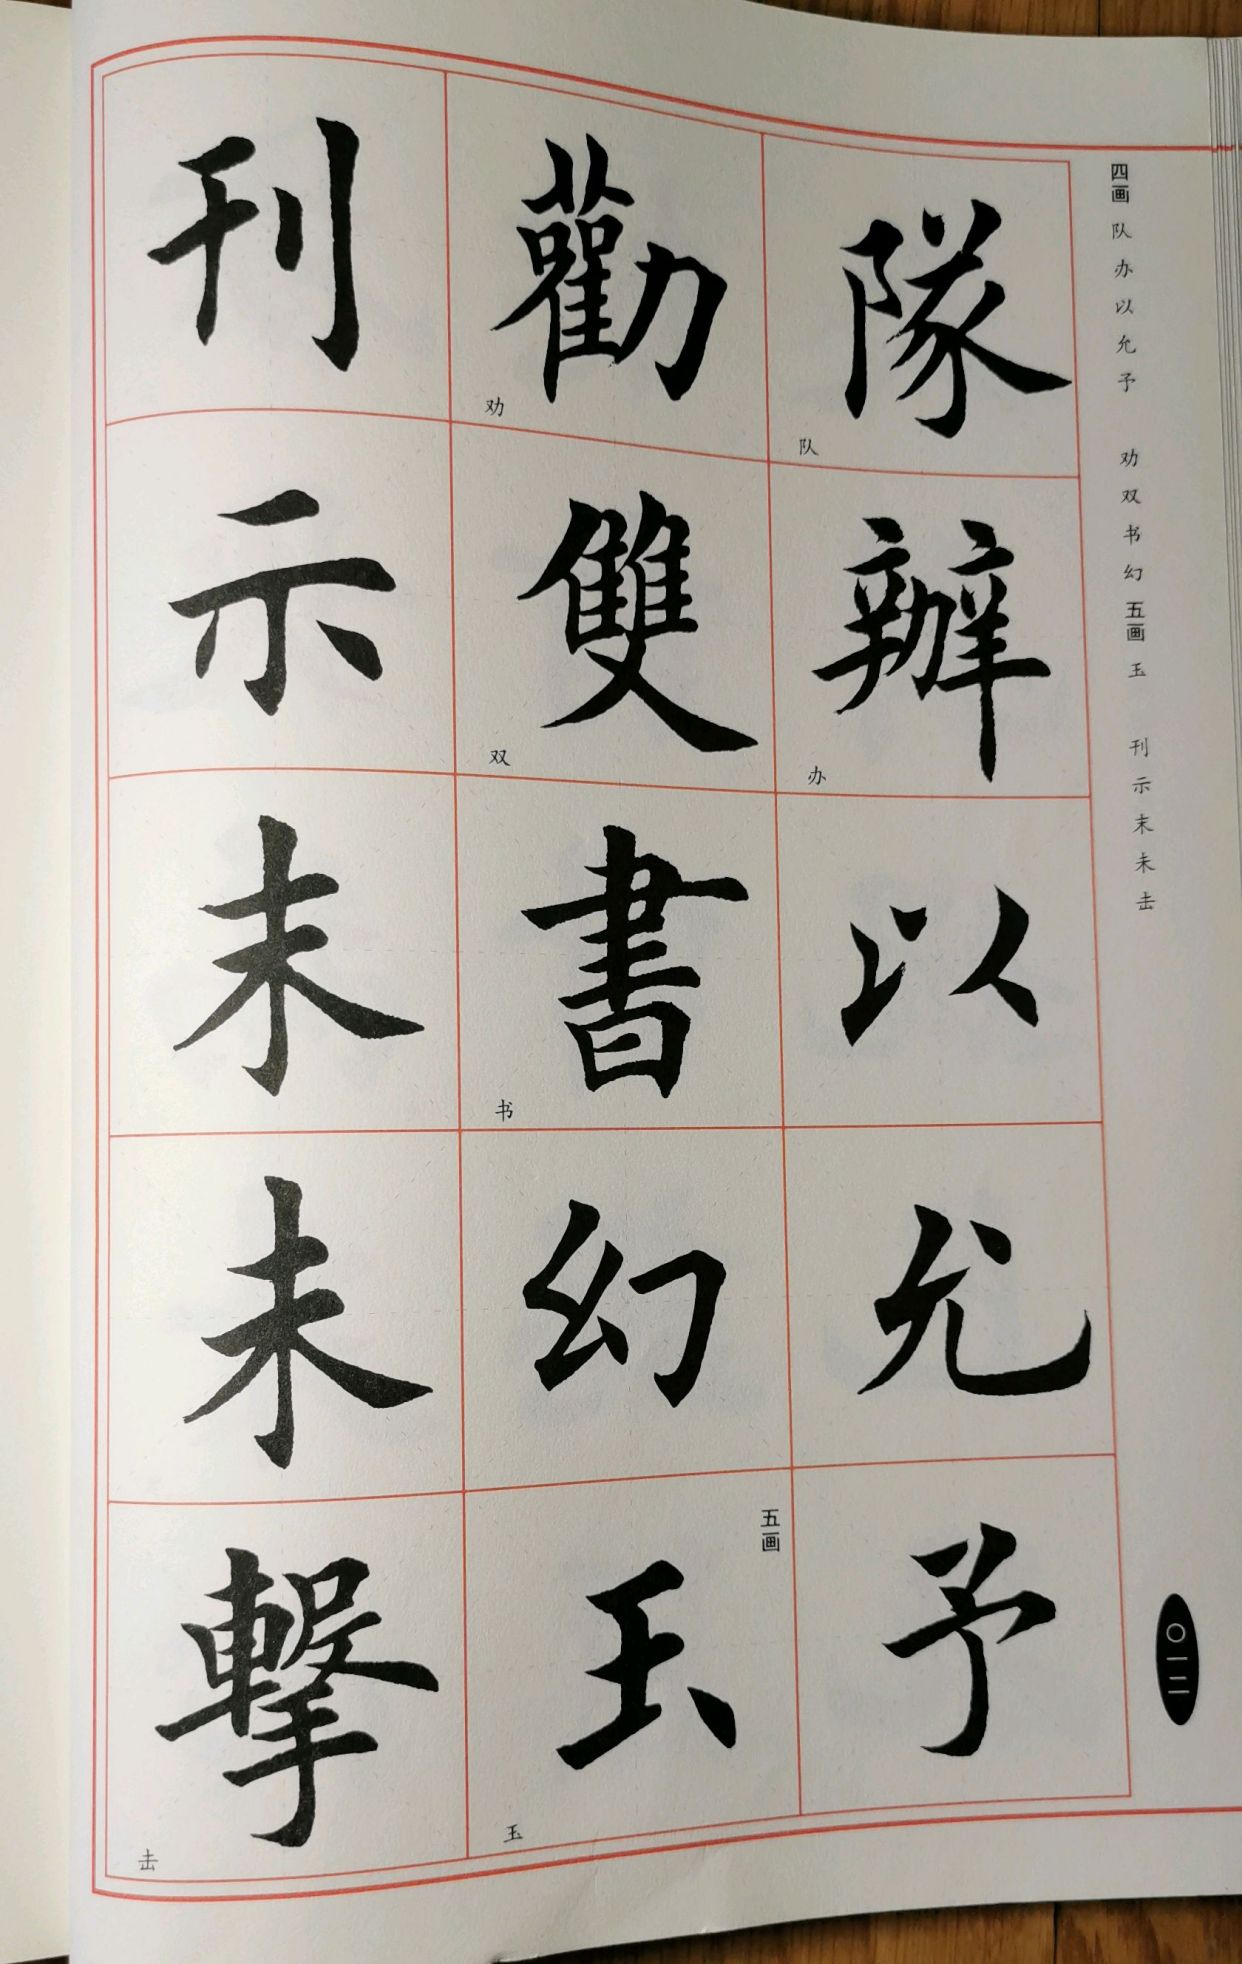 四画 队办以允予 劝双书幻 五画 玉 刊示末未击
隊 队
辦 办
以
允
予
勸 劝
雙 双
書 书
幻
五画
玉 玉
刊
示
末
未
擊 击
〇一二